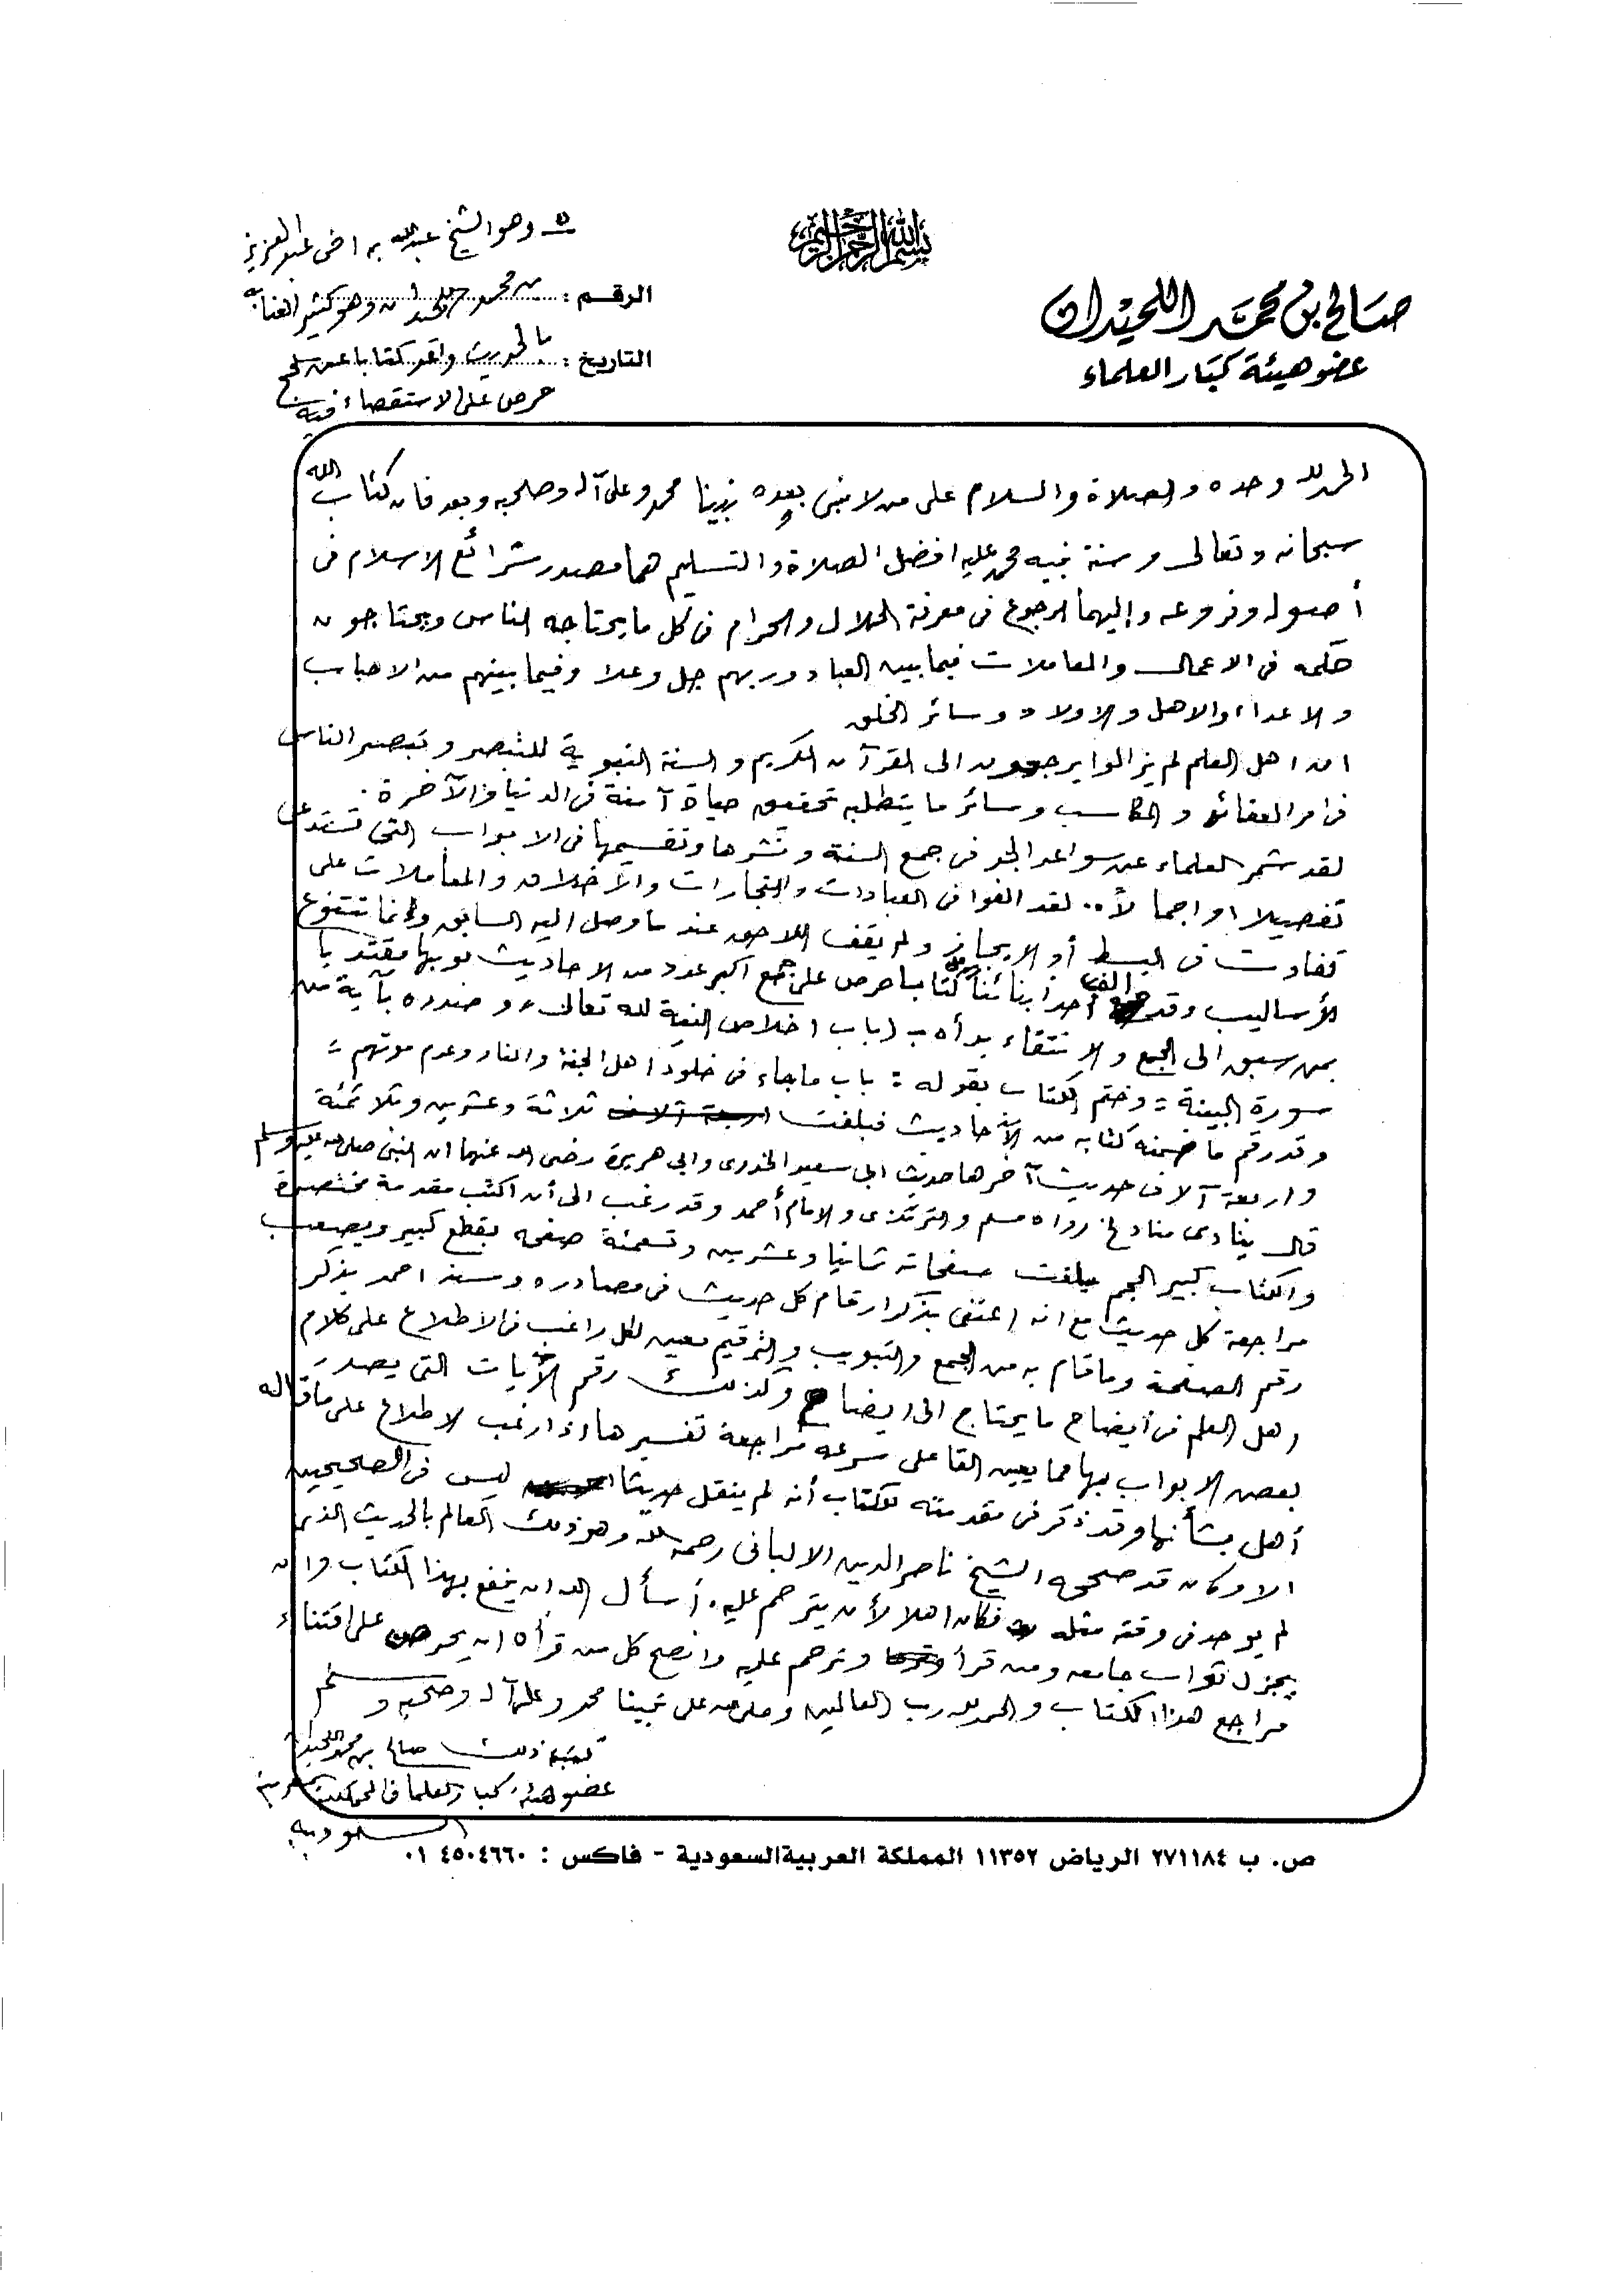 بسم الله الرحمن الرحيم
صالح بن محمد اللحيدان
عضو هيئة كبار العلماء
وهو الشيخ عبدالله بن اخي عبدالعزيز
الرقم : بن محمد اللحيدان وهو كثير العناية
التاريخ : بالحديث واعد كتابا عن الحج
حرص على الاستقصاء فيه
الحمد لله وحده والصلاة والسلام على من لا نبي بعده نبينا محمد وعلى آله وصحبه وبعد فان كتاب الله
سبحانه وتعالى وسنة نبيه محمد عليه افضل الصلاة والتسليم هما مصدر شرائع الاسلام في
أصوله وفروعه وإليهما الرجوع في معرفة الحلال والحرام في كل ما يحتاجه الناس ويحتاجون
حكمه في الاعمال والمعاملات فيما بين العباد وربهم جل وعلا وفيما بينهم من الاحباب
والاعداء والاهل والاولاد وسائر الخلق
ان اهل العلم لم يزالوا يرجعون الى القرآن الكريم والسنة النبوية للتبصر وتبصير الناس
في امر العقائد والمكاسب وسائر ما يتطلبه تحقيق حياة آمنة في الدنيا والآخرة .
لقد شمر العلماء عن سواعد الجد في جمع السنة ونشرها وتقسيمها في الابواب التي تستدعي
تفصيلا او اجمالاً .. لقد الفوا في العبادات والتجارات والأخلاق والمعاملات على
تفاوت في البسط أو الايجاز ولم يقف اللاحق عند ما وصل اليه السابق وانما تتنوع
الأساليب وقد الف أحد ابنائنا كتابا حرص على جمع اكبر عدد من الاحاديث بوبها مقتديا
بمن سبق الى الجمع والانتقاء بدأه بـ (باب اخلاص النية لله تعالى) وصدره بآية من
سورة البينة = وختم الكتاب بقوله : باب ما جاء في خلود اهل الجنة والنار وعدم موتهم =
وقد رقم ما ضمنه كتابه من الأحاديث فبلغت ثلاثة وعشرين وثلاثمئة
واربعة آلاف حديث آخرها حديث ابي سعيد الخدري وابي هريرة رضي الله عنهما ان النبي صلى الله عليه وسلم
قال ينادي مناد الخ رواه مسلم والترمذي والامام أحمد وقد رغب الى أن اكتب مقدمة مختصرة
والكتاب كبير الحجم بلغت صفحاته ثمانيا وعشرين وتسعمئة صفحه بقطع كبير ويصعب
مراجعة كل حديث مع انه اعتنى بذكر ارقام كل حديث في مصادره ومسند احمد يذكر
رقم الصفحة وما قام به من الجمع والتبويب والترقيم معين لكل راغب في الاطلاع على كلام
اهل العلم في ايضاح ما يحتاج الى ايضاح وكذلك رقم الآيات التي يصدر
بعض الابواب بها مما يعين القا على سرعه مراجعة تفسيرها اذا رغب الاطلاع على ما قاله
أهل بشأنها وقد ذكر في مقدمته للكتاب أنه لم ينقل حديثا ليس في الصحيحين
الا وكان قد صححه الشيخ ناصر الدين الالباني رحمه الله وهو ذلك العالم بالحديث الذي
لم يوجد في وقته مثله فكان اهلا لأن يترحم عليه . أسأل الله ان ينفع بهذا الكتاب وان
يجزل ثواب جامعه ومن قرأ وترحم عليه وانصح كل من قرأه ان يحرص على اقتناء
مراجع هذا الكتاب والحمد لله رب العالمين وصلى الله على نبينا محمد وعلى آله وصحبه وسلم
كتبه ذلك صالح بن محمد اللحيدان
عضو هيئة كبار العلماء في المملكة العربية
السعودية
ص. ب ٢٧١١٨٤ الرياض ١١٣٥٢ المملكة العربية السعودية - فاكس : ٤٥٠٤٦٦٠ ٠١